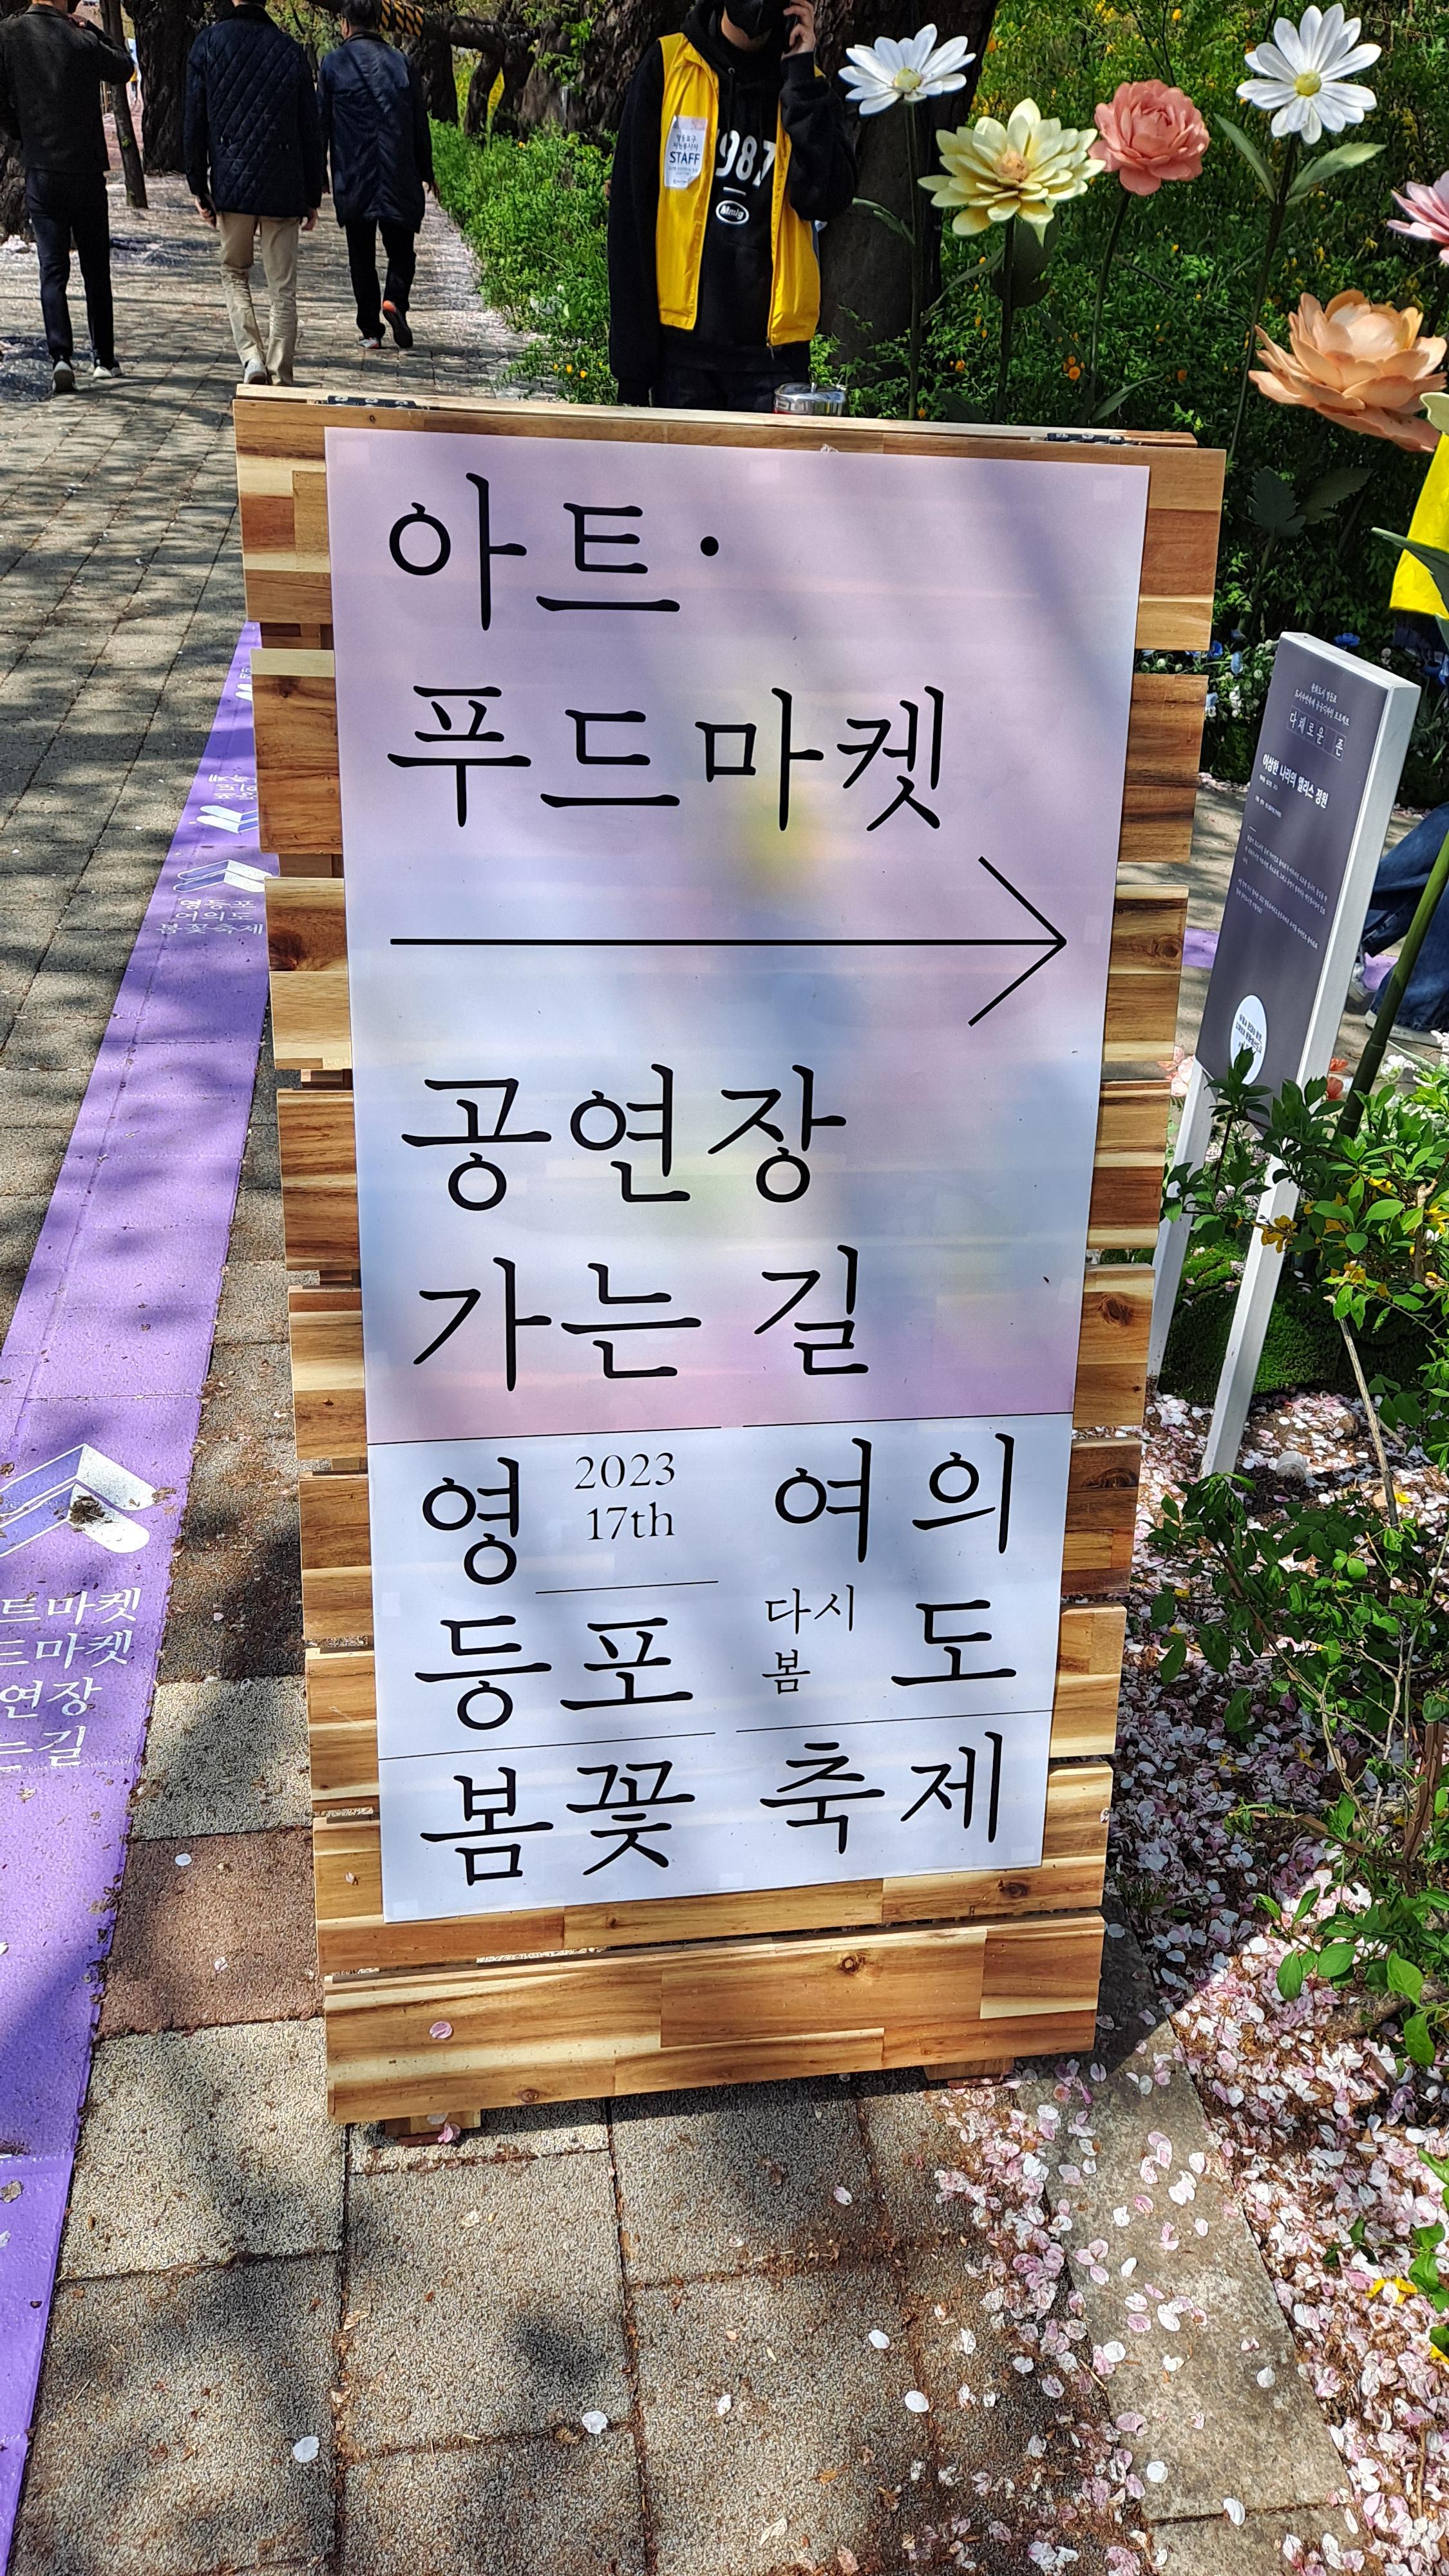 아트·
푸드마켓
공연장
가는 길
영 2023 여의
17th
등포 다시 도
봄
봄꽃 축제
STAFF
1987
Mmlg
영등포
여의도
봄꽃축제
트마켓
드마켓
연장
는길
다채로운 존
이상한 나라의 앨리스 정원